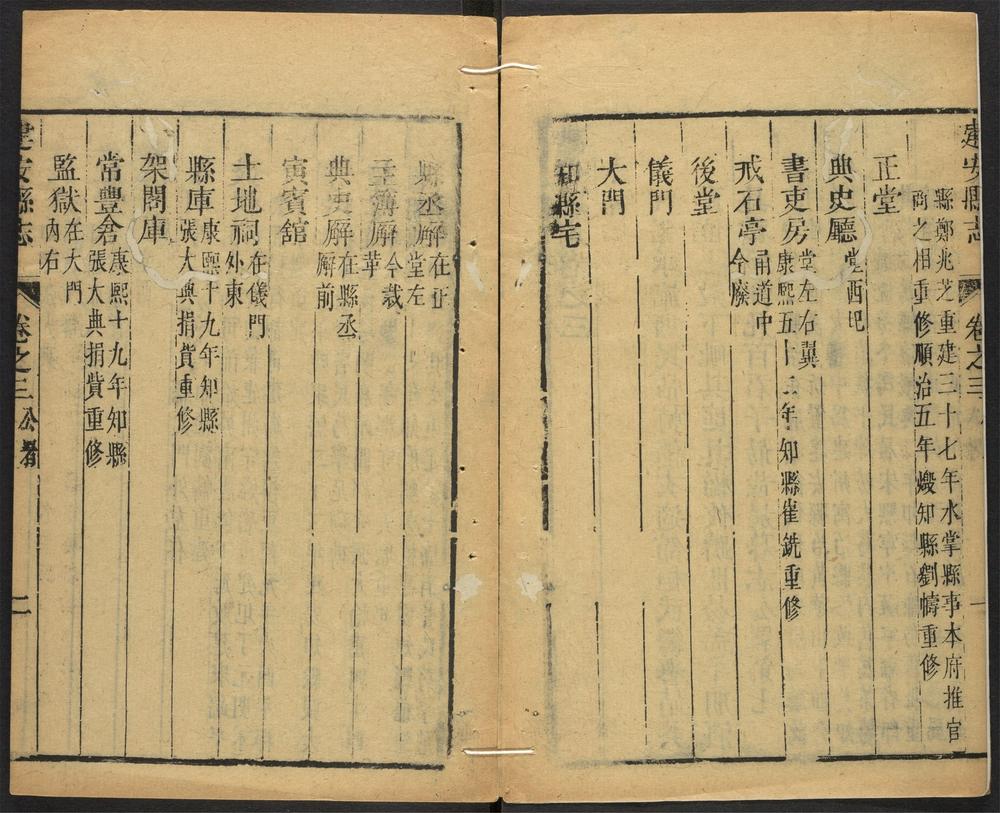 建安縣志 卷之三 一
縣鄭兆芝重建三十七年水掌縣事本府推官
之相重修順治五年燬知縣劉幬重修
正堂
典史廳堂西
書吏房堂左右翼
康熙五十二年知縣崔銑重修
戒石亭甬道中
今廢
後堂
儀門
大門
知縣宅
縣丞廨在正
堂左
主簿廨今裁
革
典史廨在縣丞
廨前
寅賓館
土地祠在儀門
外東
縣庫康熙十九年知縣
張大典捐貲重修
架閣庫
常豐倉康熙十九年知縣
張大典捐貲重修
監獄在大門
內右
建安縣志 卷之三 公署 二